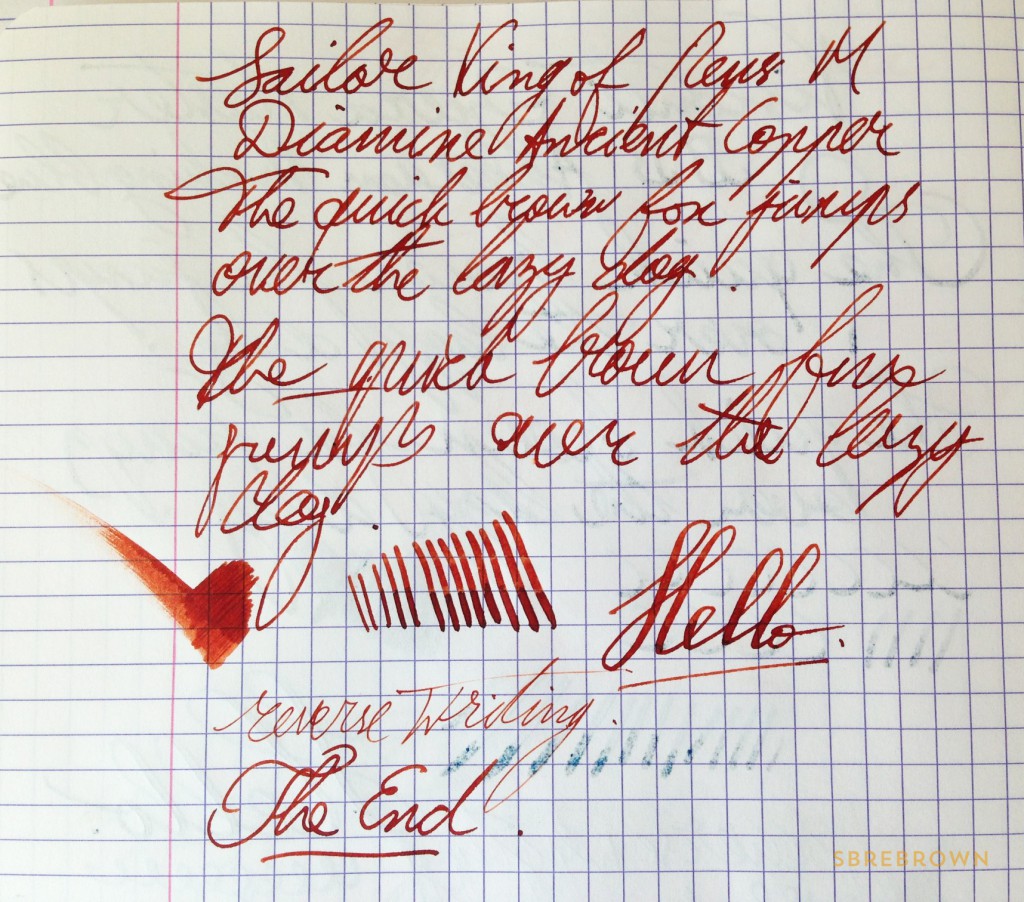 Sailor King of Pens M
Diamine Ancient Copper
The quick brown fox jumps
over the lazy dog.
The quick brown fox
jumps over the lazy
dog.
Hello.
reverse writing.
The End.
SBREBROWN